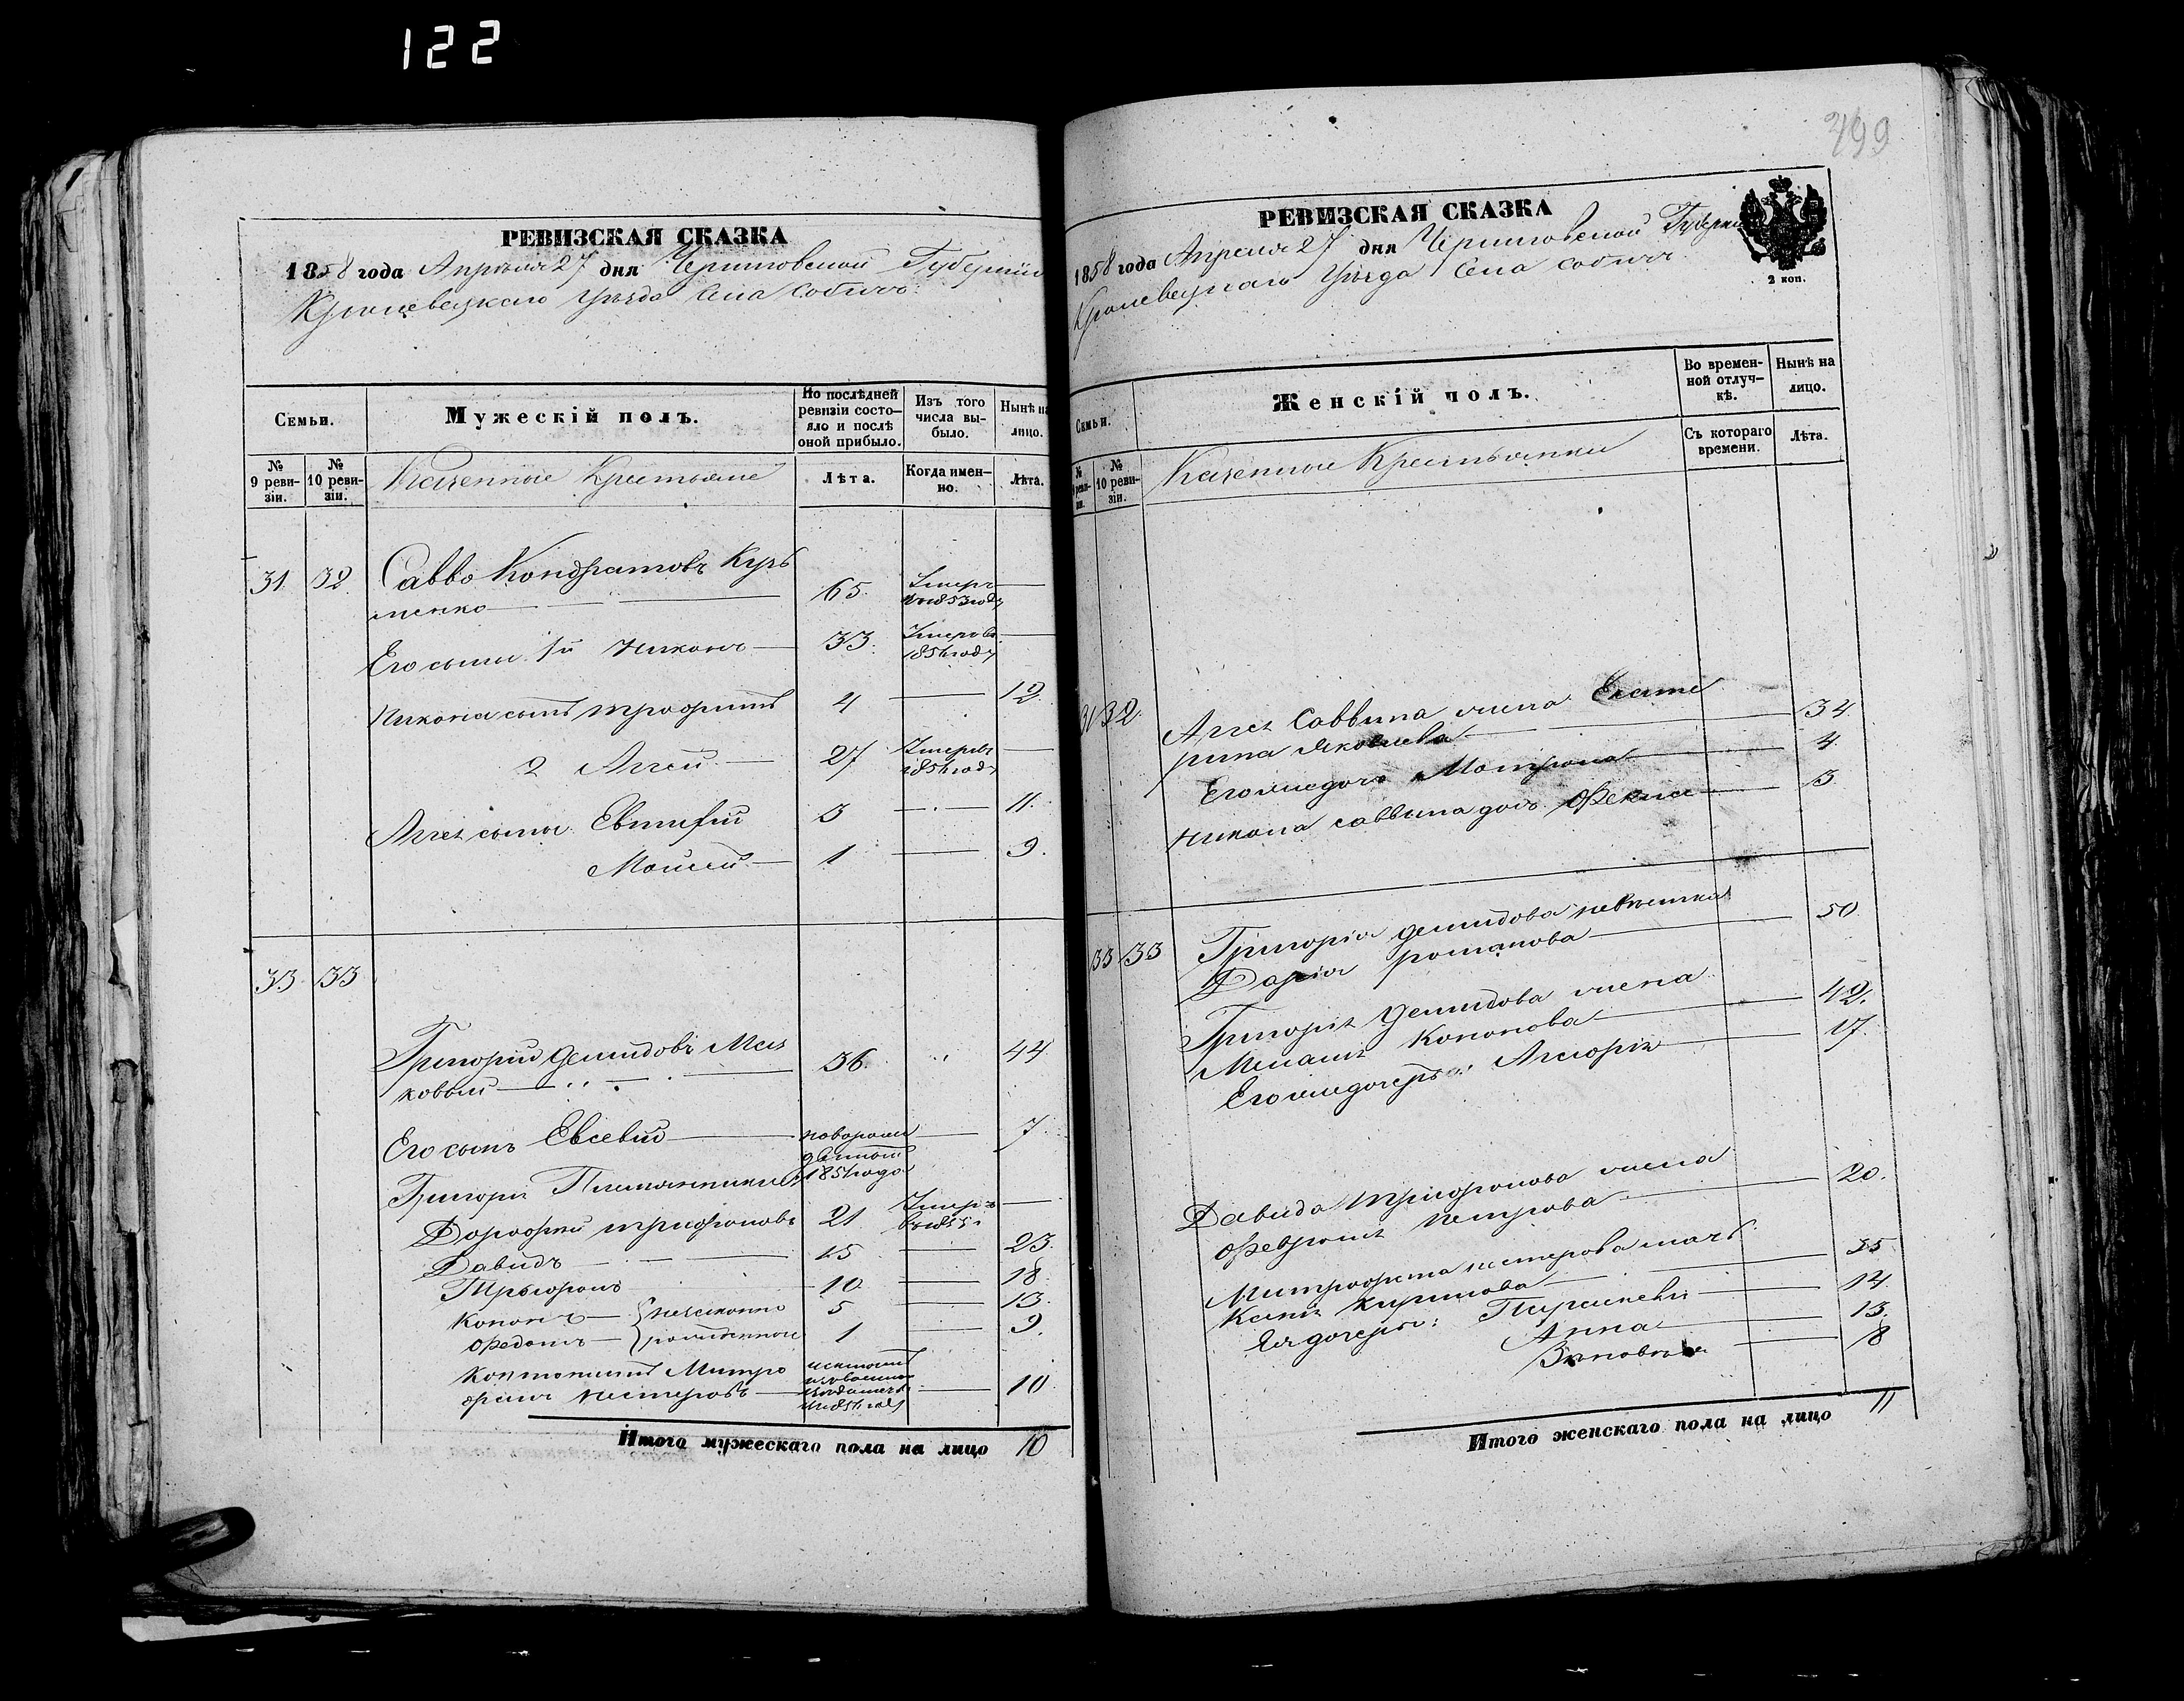 122
РЕВИЗСКАЯ СКАЗКА
1858 года Апреля 27 дня Черниговской Губернии
Кролевецкаго Уезда Села Собичь
Семьи.
Мужескій полъ.
По послѣдней ревизіи состояло и послѣ оной прибыло.
Изъ того числа выбыло.
Нынѣ на лицо.
№ 9 ревизіи.
№ 10 ревизіи.
Казенные Крестьяне
Лѣта.
Когда именно.
Лѣта.
31. 32. Савво Кондратовъ Кузь
менко 65. Умеръ въ 1853 году
Его сыны 1й Никонъ 33. Умеръ въ 1854 году
Никона сынъ Трофимъ 4 12.
2 Аггей 27 Умеръ въ 1854 году
Аггея сыны Евтифій 3 11.
Моисей 1 9.
33 33
Григорий Демидовъ
ковый 36. 44
Его сынъ Евсевій 7
1851 года
Григорія Племянники
Дорофей Трифоновъ 21 Умеръ в 1855 г
Давидъ 15 23.
Трифонъ 10 18.
Кононъ незаконно 5 13.
Федотъ рожденные 1 9.
Митро
фанъ Нестеровъ 10
Итого мужескаго пола на лицо 10
499
РЕВИЗСКАЯ СКАЗКА
1858 года Апреля 27 дня Черниговской Губернии
Кролевецкаго Уезда Села Собичь
2 коп.
Семьи.
Женскій полъ.
Во временной отлучкѣ.
Нынѣ на лицо.
№ 9 ревизіи.
№ 10 ревизіи.
Казенные Крестьянки
Съ котораго времени.
Лѣта.
31 32. Аггея Саввина жена Екате
рина Яковлева 34.
Егоже дочь Матрона 4.
Никона Саввина дочь Фекла 3
33 33 Григорія Демидова невестка
Дарія Романова 50
Григорія Демидова жена
Меланія Кононова 42.
Егоже дочерь: 17.
Давида Трифонова жена
Февронія Петрова 20.
Митрофана Нестерова мать
Ксенія Кирилова 35
Ея дочери: Параскевія 14
Анна 13.
Зиновія 8
Итого женскаго пола на лицо 11